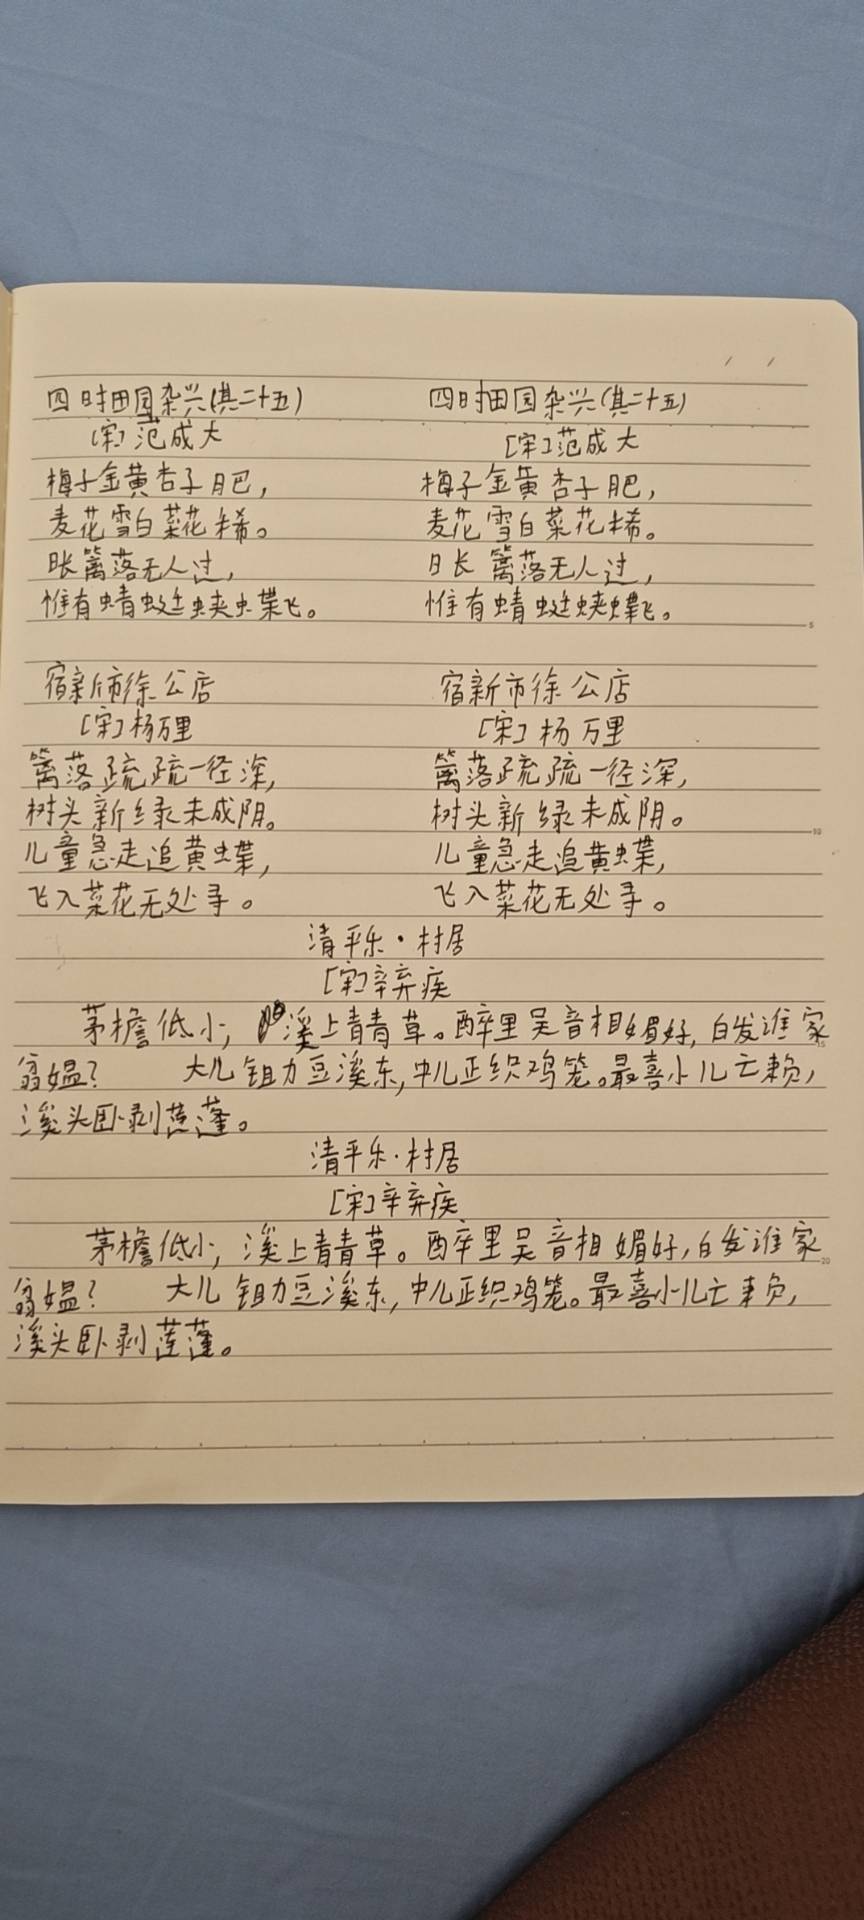 四时田园杂兴(其二十五)
[宋]范成大
梅子金黄杏子肥,
麦花雪白菜花稀。
日长篱落无人过,
惟有蜻蜓蛱蝶飞。
四时田园杂兴(其二十五)
[宋]范成大
梅子金黄杏子肥,
麦花雪白菜花稀。
日长篱落无人过,
惟有蜻蜓蛱蝶飞。
宿新市徐公店
[宋]杨万里
篱落疏疏一径深,
树头新绿未成阴。
儿童急走追黄蝶,
飞入菜花无处寻。
宿新市徐公店
[宋]杨万里
篱落疏疏一径深,
树头新绿未成阴。
儿童急走追黄蝶,
飞入菜花无处寻。
清平乐·村居
[宋]辛弃疾
茅檐低小,溪上青青草。醉里吴音相媚好,白发谁家
翁媪? 大儿锄豆溪东,中儿正织鸡笼。最喜小儿亡赖,
溪头卧剥莲蓬。
清平乐·村居
[宋]辛弃疾
茅檐低小,溪上青青草。醉里吴音相媚好,白发谁家
翁媪? 大儿锄豆溪东,中儿正织鸡笼。最喜小儿亡赖,
溪头卧剥莲蓬。
5
10
15
20